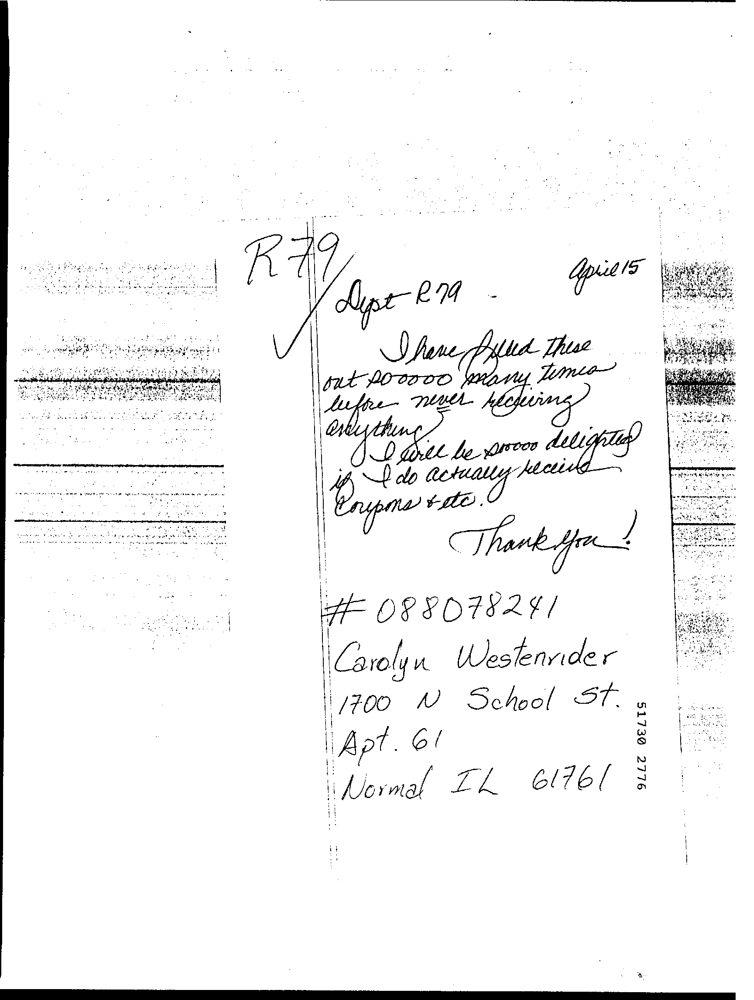 R79
April 15
Dept R79 -
I have filled these
out sooooo many times
before never receiving
anything
I will be sooooo delighted
if I do actually receive
Coupons & etc.
Thank you!
# 088078241
Carolyn Westenrider
1700 N School St.
Apt. 61
Normal IL 61761
51730 2776